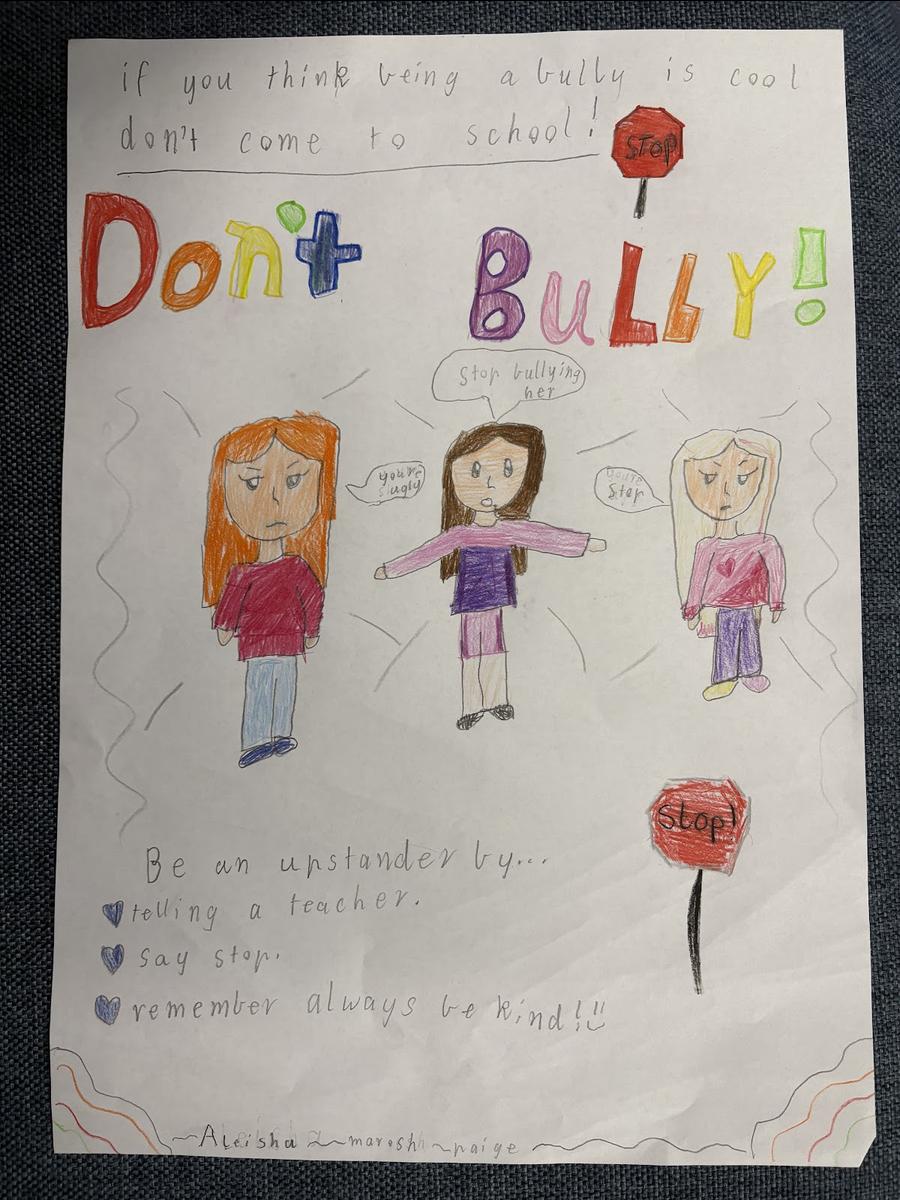 if you think being a bully is cool
don't come to school!
STOP
Don't BuLLY!
Stop bullying
her
you're
ugly
you're
Stop
Stop!
Be an upstander by...
telling a teacher.
say stop.
remember always be kind!!
~Aleisha ~marosh ~paige